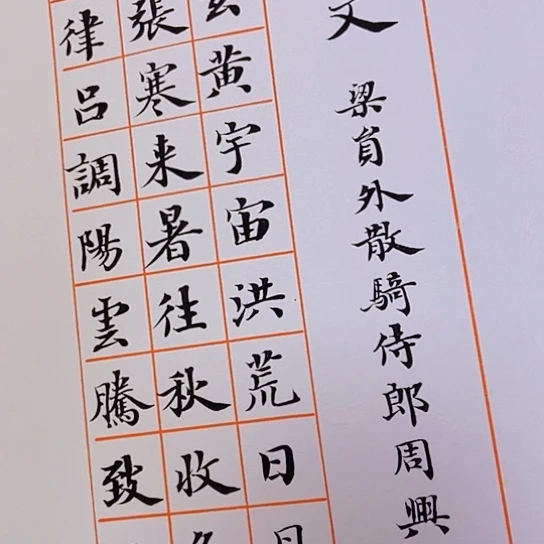 文 梁員外散騎侍郎周興
玄黄宇宙洪荒日月
張寒来暑往秋收冬
律呂調陽雲騰致